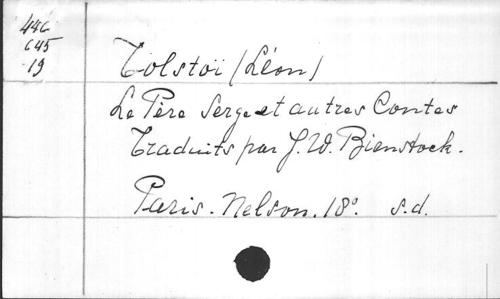 446
645
19
Tolstoï (Léon)
Le Père Serge et autres Contes
Traduits par J. W. Bienstock.
Paris. Nelson. 18°. s.d.